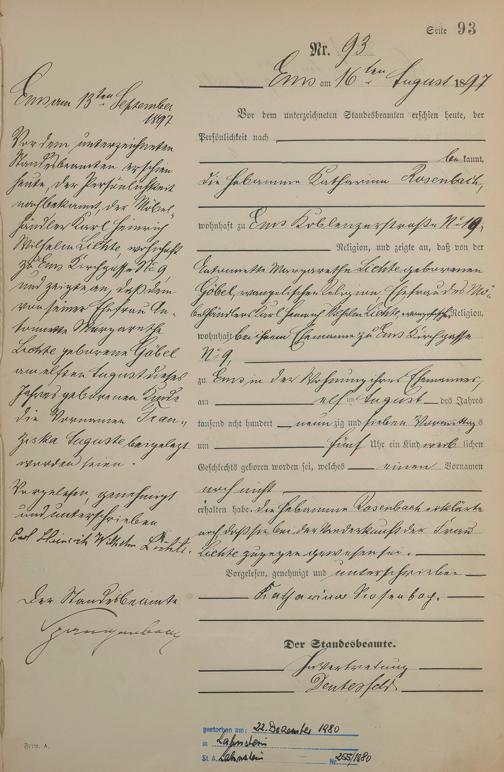 Seite 93
Nr. 93
Ems am 16ten August 1897
Vor dem unterzeichneten Standesbeamten erschien heute, der
Persönlichkeit nach
bekannt,
die Hebamme Katharina Rosenbach,
wohnhaft zu Ems Koblenzerstraße No 19,
Religion, und zeigte an, daß von der
Antonette Margarethe Lichte geborenen
Göbel, evangelischer Religion, Ehefrau des Mö-
belhändlers Karl Heinrich Wilhelm Lichte, Religion,
wohnhaft bei ihrem Ehemanne zu Ems Kirchgasse
No 9
zu Ems in der Wohnung ihres Ehemannes,
am elften August des Jahres
tausend acht hundert neunzig und sieben Vormittags
um fünf Uhr ein Kind weiblichen
Geschlechts geboren worden sei, welches einen Vornamen
noch nicht
erhalten habe. Die Hebamme Rosenbach erklärte
noch daß sie bei der Niederkunft der Frau
Lichte zugegen gewesen sei.
Vorgelesen, genehmigt und unterschrieben
Katharina Rosenbach.
Der Standesbeamte.
In Vertretung
Ems am 13ten September
1897.
Vor dem unterzeichneten
Standesbeamten erschien
heute, der Persönlichkeit
nach bekannt, der Möbel-
händler Karl Heinrich
Wilhelm Lichte, wohnhaft
zu Ems Kirchgasse No 9
und zeigte an, daß dem
von seiner Ehefrau An-
tonette Margarethe
Lichte geborene Göbel
am elften August dieses
Jahres geborenen Kinde
die Vornamen Fran-
ziska Auguste beigelegt
worden seien.
Vorgelesen, genehmigt
und unterschrieben
Carl Heinrich Wilhelm Lichte.
Der Standesbeamte
Spangenberg
gestorben am: 22. Dezember 1980
in Lahnstein
St. A. Lahnstein Nr. 255/1980
Form. A.